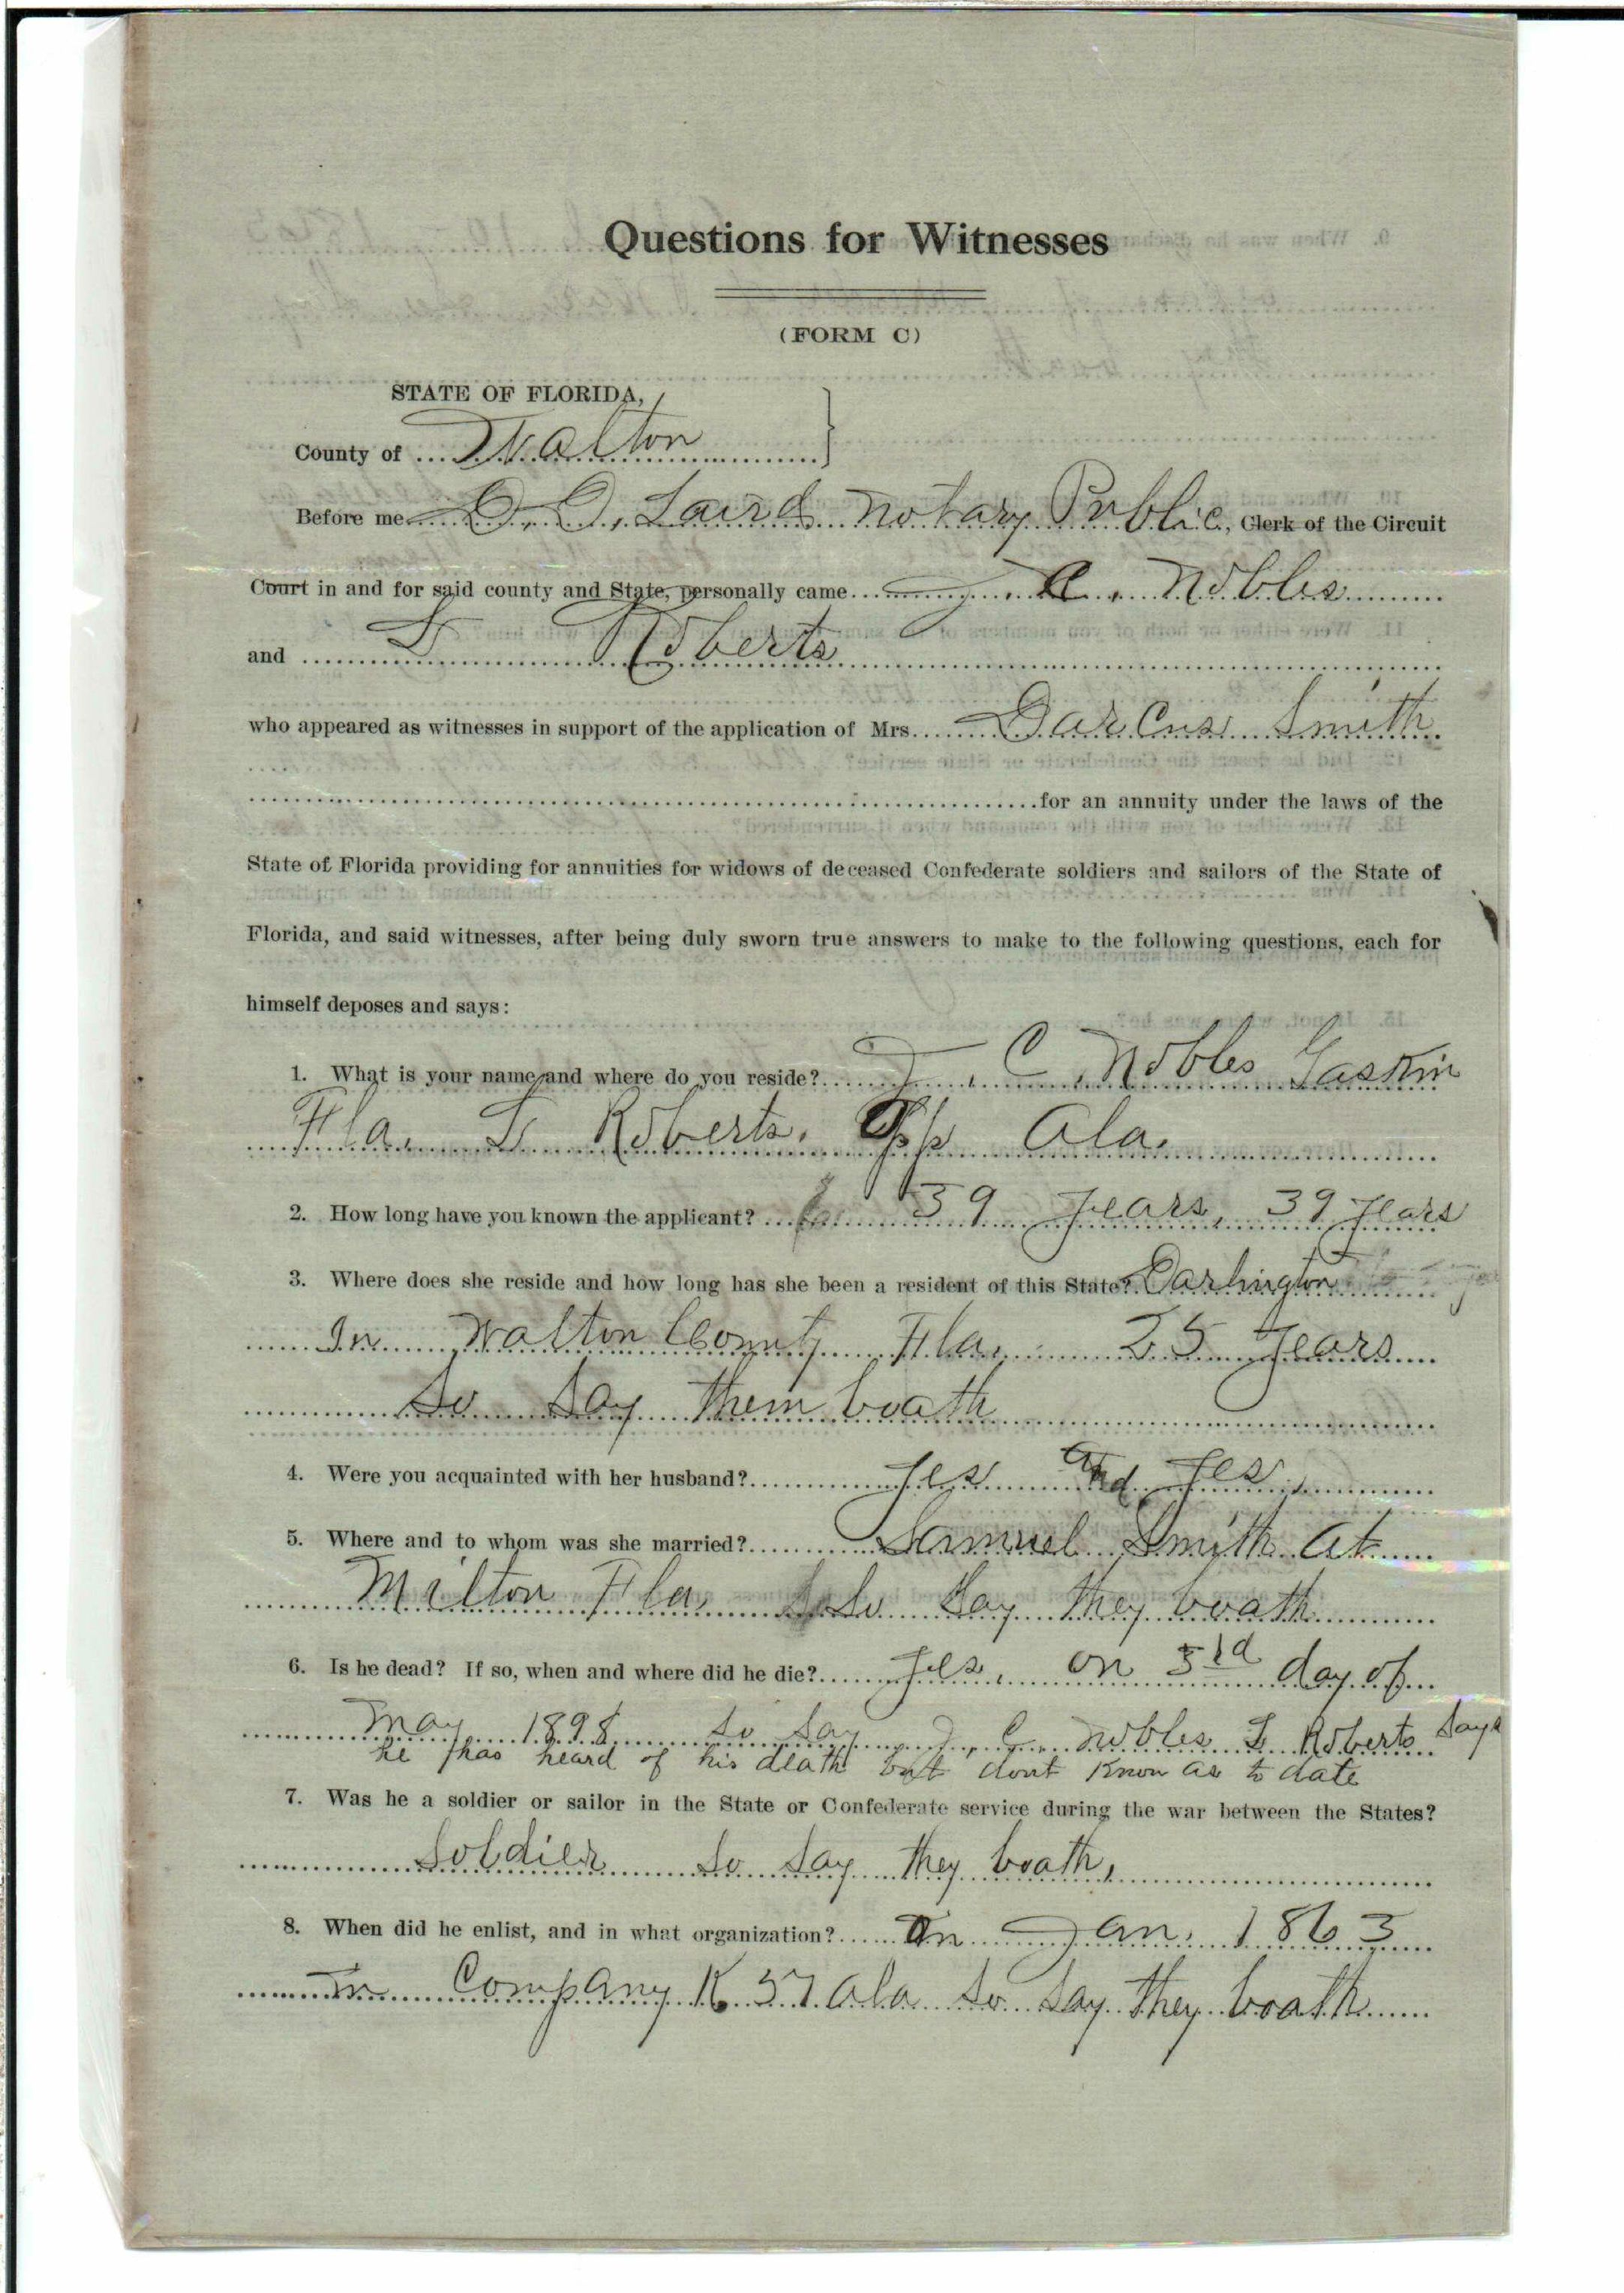 Questions for Witnesses
(FORM C)
STATE OF FLORIDA,
County of Walton
Before me D. D. Laird Notary Public, Clerk of the Circuit
Court in and for said county and State, personally came J. C. Nobles
and L Roberts
who appeared as witnesses in support of the application of Mrs. Darcus Smith
for an annuity under the laws of the
State of Florida providing for annuities for widows of deceased Confederate soldiers and sailors of the State of
Florida, and said witnesses, after being duly sworn true answers to make to the following questions, each for
himself deposes and says:
1. What is your name and where do you reside? J. C. Nobles Gaskin
Fla. L Roberts. Opp Ala.
2. How long have you known the applicant? 39 years, 39 years
3. Where does she reside and how long has she been a resident of this State? Darlington
In Walton County Fla. 25 years
So Say them boath
4. Were you acquainted with her husband? yes and yes,
5. Where and to whom was she married? Samuel Smith at
Milton Fla. So Say they boath
6. Is he dead? If so, when and where did he die? yes, on 3rd day of
May 1898 so say J. C. Nobles L Roberts says
he has heard of his death but dont know as to date
7. Was he a soldier or sailor in the State or Confederate service during the war between the States?
Soldier so say they boath,
8. When did he enlist, and in what organization? In Jan. 1863
in Company K 57 ala so say they boath